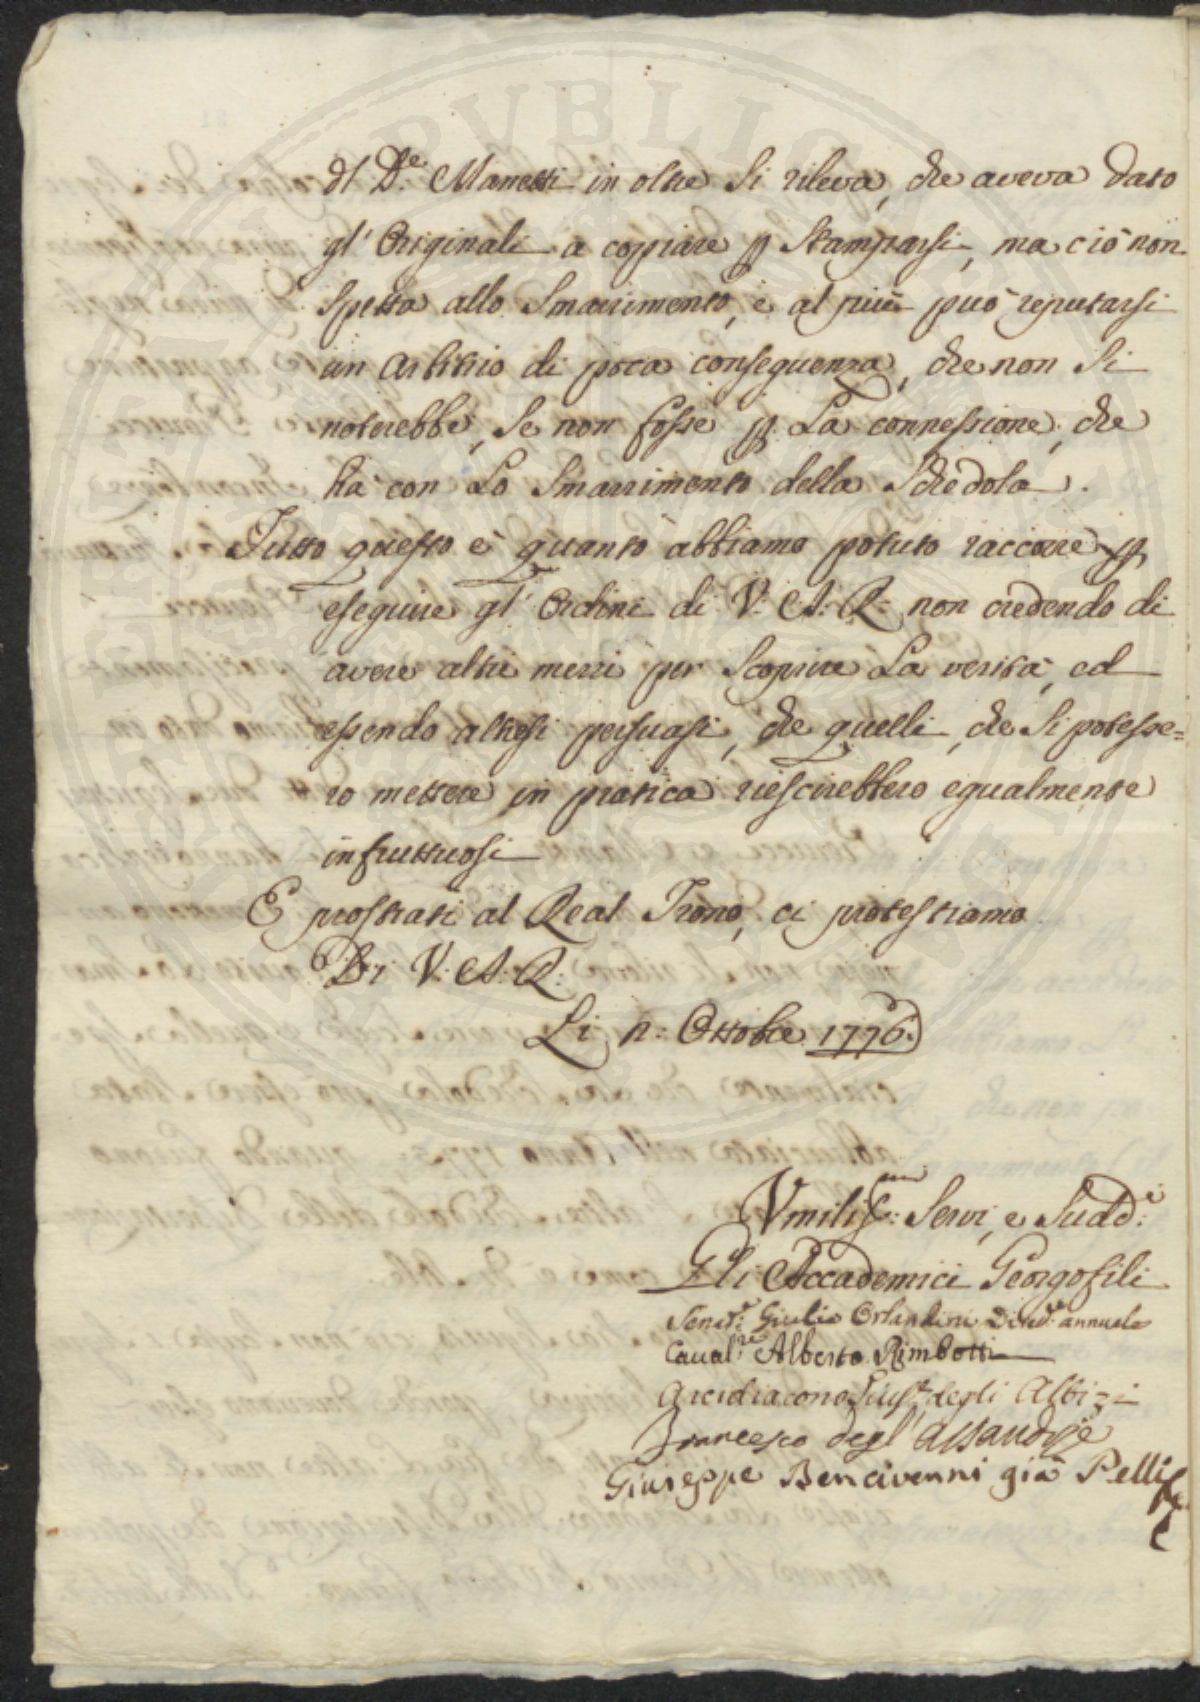 Dl D.e Manetti in oltre Si rileva, che aveva dato
gl' Originali a coppiare p Stamparsi, ma ciò non
spetta allo Smarrimento, e al più può reputarsi
un Arbitrio di poca conseguenza, che non Si
noterebbe, Se non fosse p La connessione, che
ha con Lo Smarrimento della Schedola.
Tutto questo è quanto abbiamo potuto raccorre p
eseguire gl' Ordini di V: A: R: non credendo di
avere altri mezzi per Scoprire La verità, ed
essendo altresì persuasi, che quelli, che Si potesse=
ro mettere in pratica riescirebbero egualmente
infruttuosi
E prostrati al Real Trono, ci protestiamo
Di V: A: R:
Li 12: Ottobre 1776.
Vmiliss:mi Servi, e Sudd:i
Gli Accademici Georgofili
Senat:e Giulio Orlandini Dirett:e annuale
Caval:re Alberto Rimbotti
Arcidiacono degli Albizi
Francesco degl'
Giuseppe Bencivenni già Pelli
PUBLICA